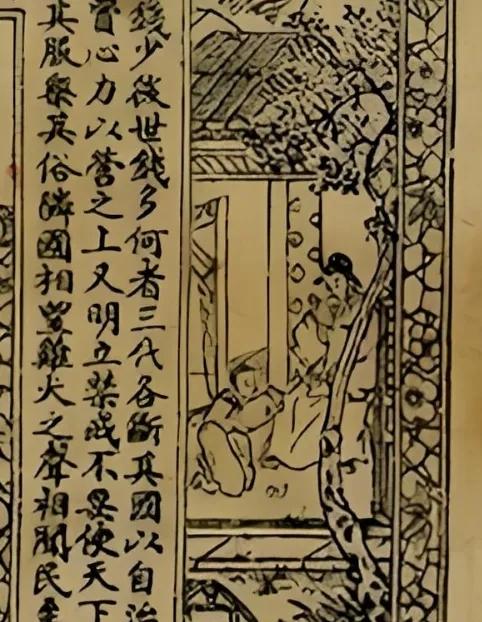 錢少後世錢多何者三代各斷其國以自治
心力以营之上又明立禁戒不要使天下
其服樂其俗隣國相望雞犬之聲相聞民至